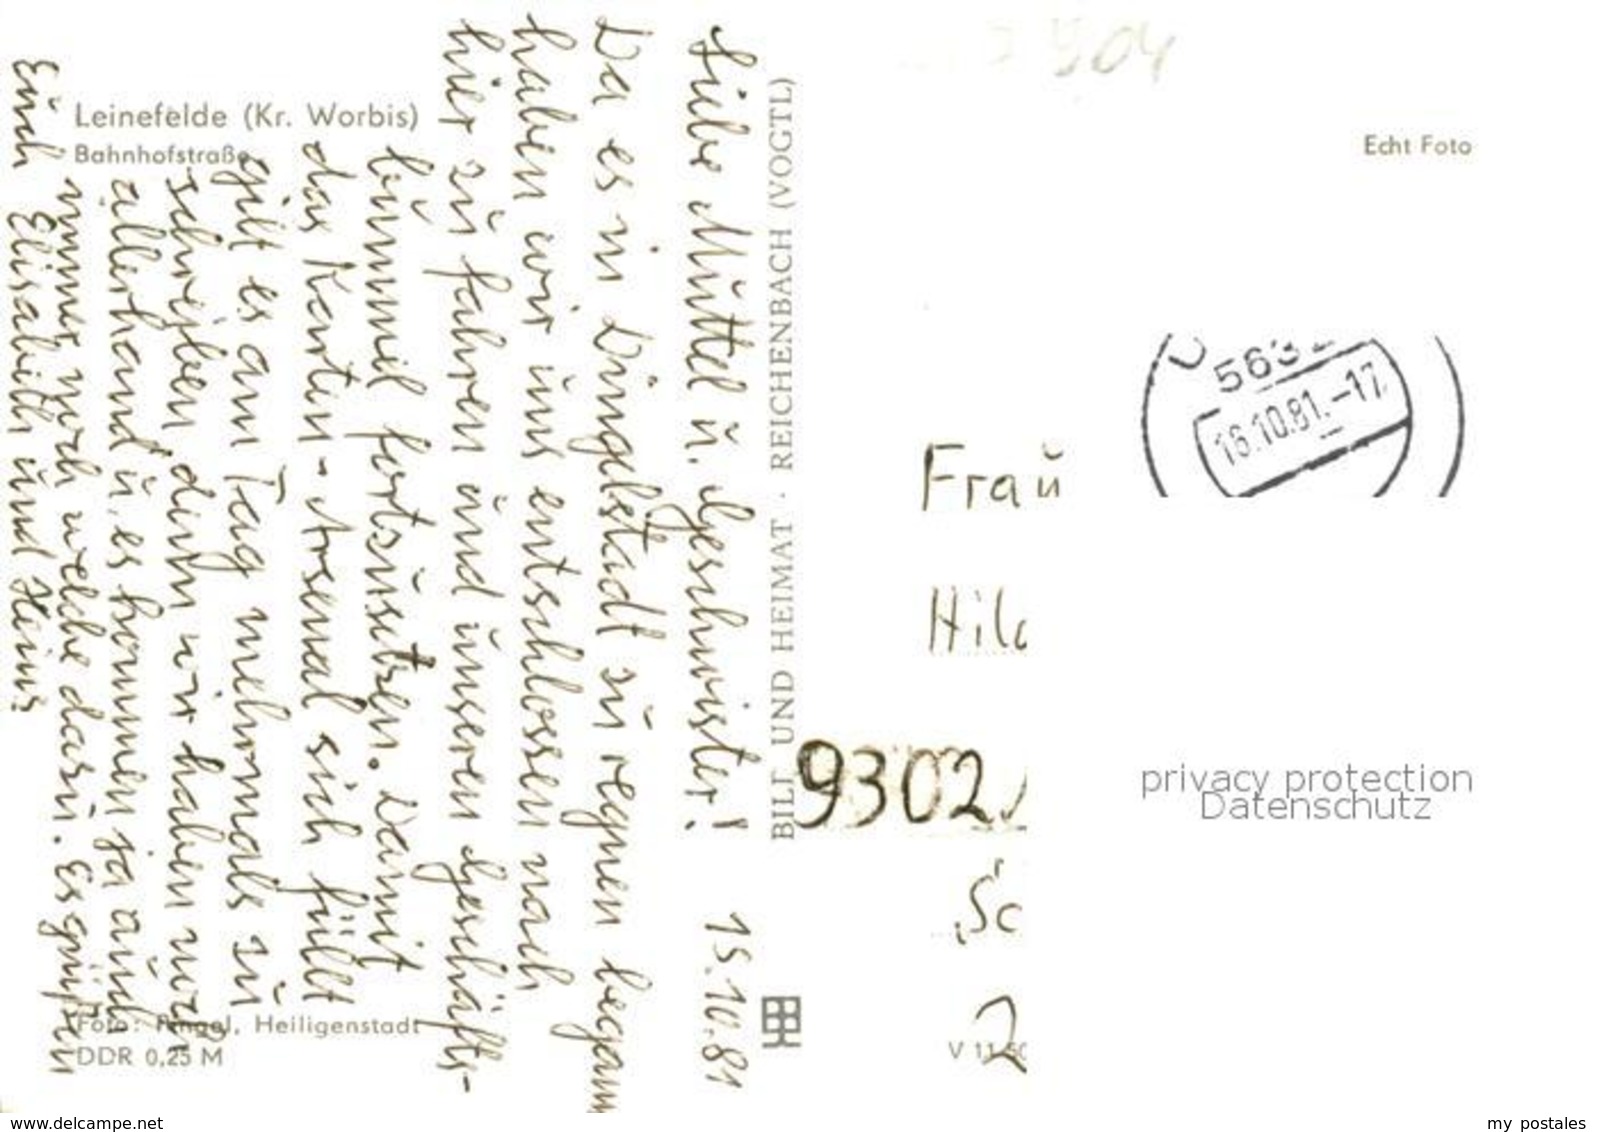 Leinefelde (Kr. Worbis)
Bahnhofstraße
Liebe Muttel u. Geschwister!
15.10.81
Da es in Dingelstädt zu regnen begann
haben wir uns entschlossen nach
hier zu fahren und unseren Geschäfts-
bummel fortzusetzen. Damit
das Karten-Arsenal sich füllt
gilt es am Tag mehrmals zu
schreiben, denn wir haben noch
allerhand u. es kommen ja auch
immer noch welche dazu. Es grüßen
Euch Elisabeth und Heinz
Foto: Ringel, Heiligenstadt
DDR 0,25 M
BILD UND HEIMAT · REICHENBACH (VOGTL)
904
Echt Foto
563
16.10.81.-17
Frau
Hild
9302
Sc
2
V 11 50
privacy protection
Datenschutz
www.delcampe.net
my_postales